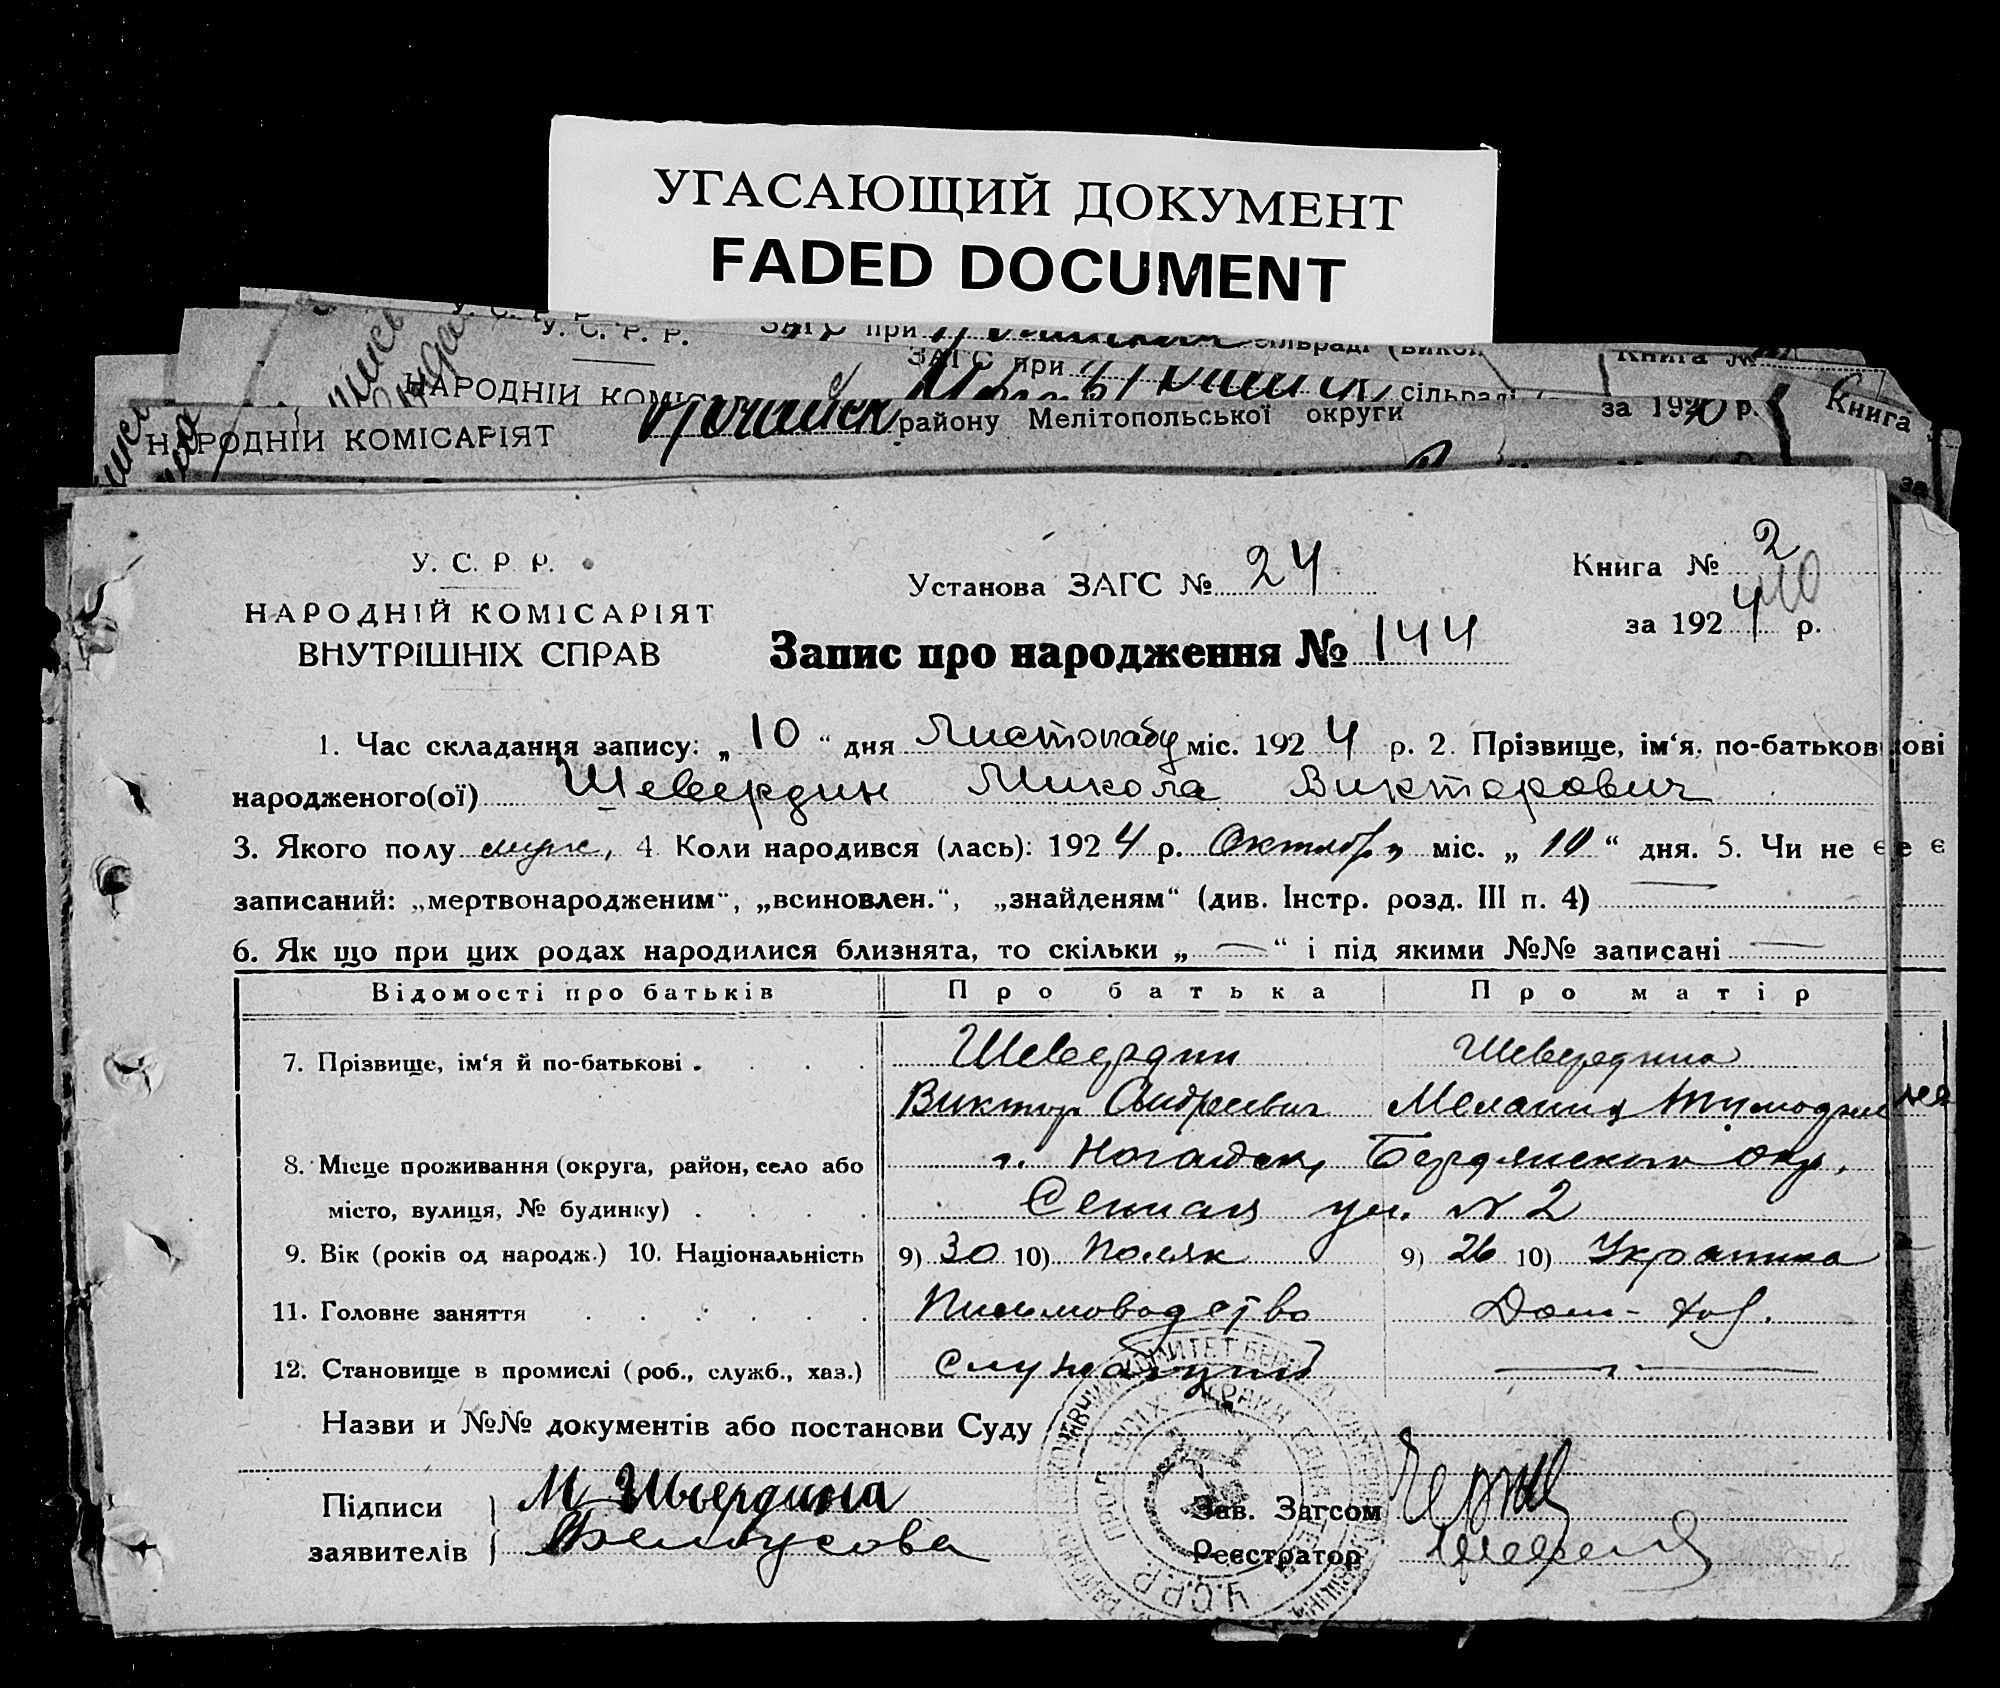 УГАСАЮЩИЙ ДОКУМЕНТ
FADED DOCUMENT
У. С. Р. Р.
У. С. Р. Р. ЗАГС при
ЗАГС при сільраді
НАРОДНІЙ Книга №
НАРОДНІЙ КОМІСАРІЯТ району Мелітопольської округи за 19 р. Книга
за
У. С. Р Р. Установа ЗАГС № 24 Книга № 2
НАРОДНІЙ КОМІСАРІЯТ за 1924 р.
ВНУТРІШНІХ СПРАВ Запис про народження № 144
1. Час складання запису: „ 10 “ дня Листопаду міс. 1924 р. 2. Прізвище, ім‘я, по-батькові
народженого(ої) Шевердин Микола Викторович
3. Якого полу муж, 4 Коли народився (лась): 1924 р. Октября міс. „ 10 “ дня. 5. Чи не є
записаний: „мертвонародженим“, „всиновлен.“, „знайденям“ (див. Інстр. розд. III п. 4) —
6. Як що при цих родах народилися близнята, то скільки „ — “ і під якими №№ записані —
Відомості про батьків Про батька Про матір
7. Прізвище, ім‘я й по-батькові . Шевердин Шевердина
Виктор Андреевич Мелания
8. Місце проживання (округа, район, село або г. Ногайск, Бердянского окр.
місто, вулиця, № будинку) . Сенная ул. № 2
9. Вік (років од народж.) 10. Національність 9) 30 10) Поляк 9) 26 10) Украинка
11. Головне заняття Письмоводство Дом-хоз.
12. Становище в промислі (роб., служб., хаз.) Служащий —
Назви и №№ документів або постанови Суду
Підписи М Шевердина Зав. Загсом
заявителів Белоусова Реєстратор
У.С.Р.Р